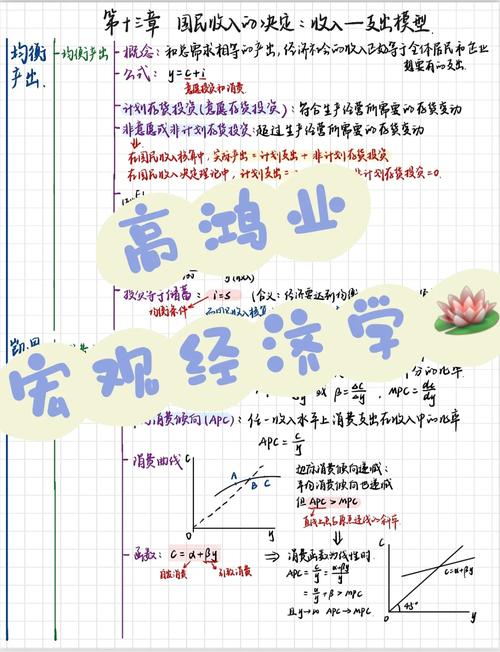 第十三章 国民收入的决定：收入—支出模型
均衡产出
均衡产出
概念：和总需求相等的产出，经济社会的收入正好等于全体居民和企业
想要有的支出.
公式：y=c+i
意愿投资和消费
计划存货投资(意愿存货投资)：符合生产经营所需要的存货变动
非意愿或非计划存货投资：超过生产经营所需要的存货变动
在国民收入核算中，实际产出=计划支出+非计划存货投资
在国民收入决定理论中，计划支出=
非计划存货投资=0.
高鸿业
投资等于储蓄：i=s (含义：经济要达到均衡
均衡条件
宏观经济学
的比率
或 β=Δc/Δy, MPC=dc/dy
消费倾向(APC)：任一收入水平上消费支出在收入中的比率
APC=c/y
消费曲线
c
A
B
C
0
y
边际消费倾向递减；
平均消费倾向也递减
但 APC>MPC
函数：c=α+βy
自发消费
引致消费
⇒ 消费函数为线性时.
APC=c/y=(α+βy)/y
=α/y+β>MPC
且y→∞ APC→MPC
c
c=α+βy
45°
0
y